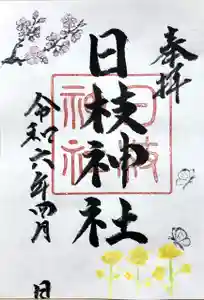 奉拝
日枝神社
日枝神社
令和六年四月
日